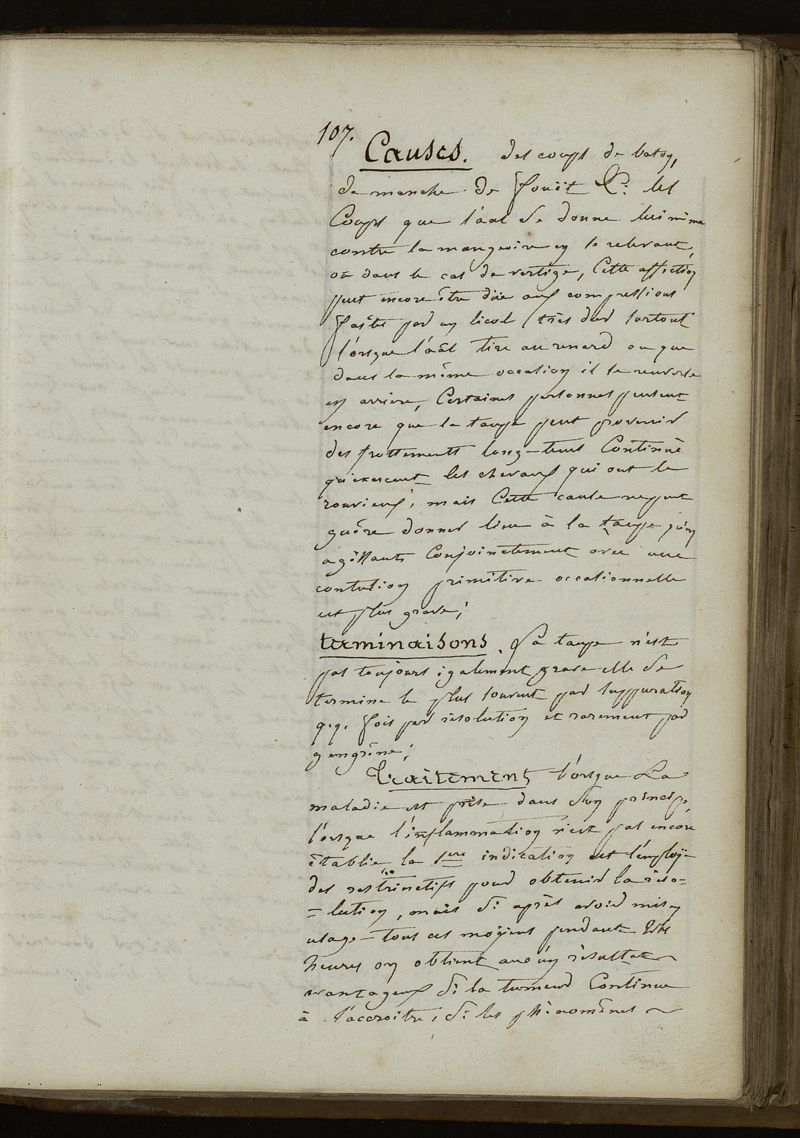 107.
Causes. des coups de baton,
de manche de fouët &c. les
Coups que l'aal se donne lui mime
contre la mangeoire en se relevant,
ou dans le cas de vertige, Cette affection
peut encore être düe aux compressions
faites par un licol très dur surtout
lorsque l'aâl tire au renard ou que
dans la même occation il se renverse
en arriere, Certaines personnes pensent
encore que la taupe peut provenir
des frottements long-tems Continué
qu'exercent les chevaux qui ont le
rouvieux, mais Cette cause ne peut
guère donner lieu à la taupe qu'en
agissants Conjointement avec une
contution primitive occationnelle
et plus grave;
terminaisons. La taupe n'est
pas toujours également grave elle se
termine le plus souvent par suppuration
q.q. fois par résolution et rarement par
gangrêne;
Traitement lorsque La
maladie est prise dans son principe,
lorsque l'inflammation n'est pas encore
établie la 1ere indication est l'emploÿ
des restrinctifs pour obtenir la réso-
=lution, mais si après avoir mis en
usage tous ces moÿens pendant
heures on obtient aucun résultat
avantageux si la tumeur Continue
à s'accroitre, si les phénomênes